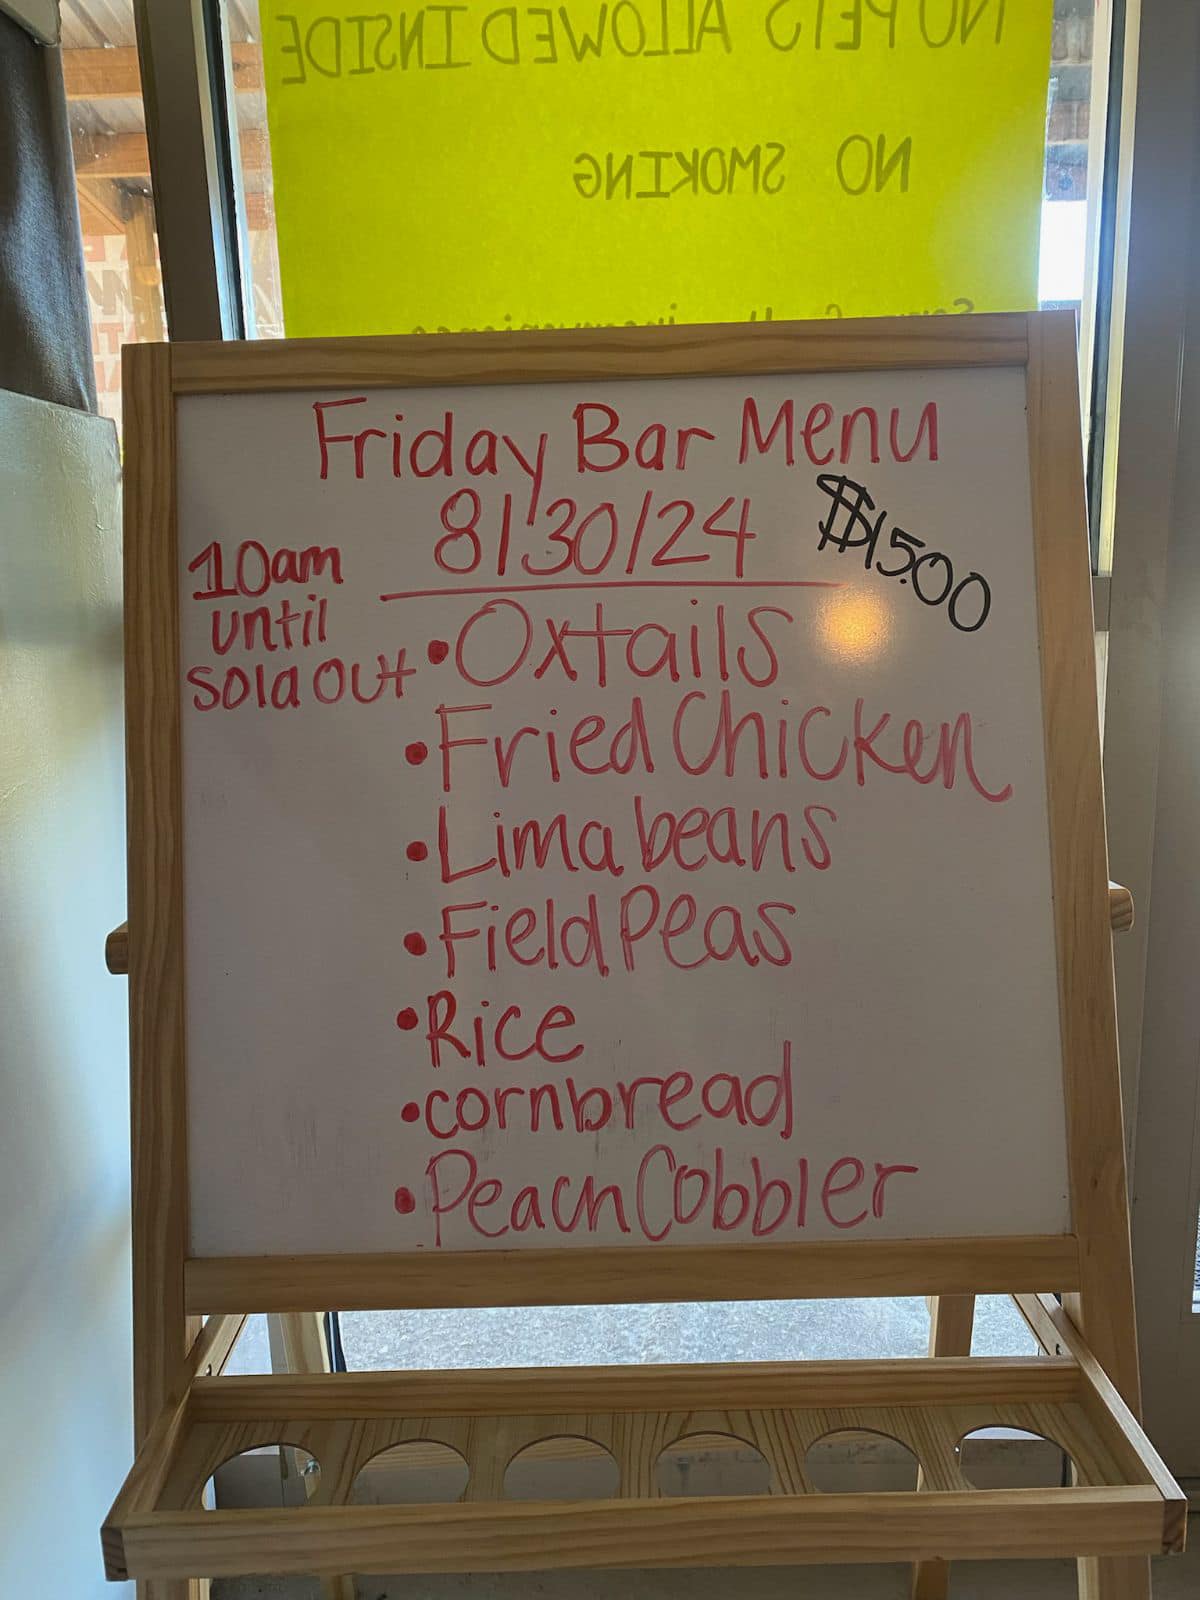 NO PETS ALLOWED INSIDE
NO SMOKING
Friday Bar Menu
8/30/24
$15.00
10am
until
sold out
• Oxtails
• Fried Chicken
• Lima beans
• Field Peas
• Rice
• cornbread
• Peach Cobbler